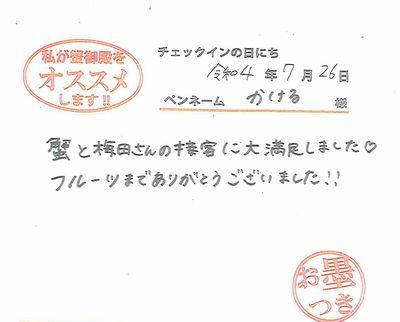 私が蟹御殿を
オススメ
します!!
チェックインの日にち
令和4年7月26日
ペンネーム かける 様
蟹と梅田さんの接客に大満足しました♡
フルーツまでありがとうございました!!
お墨
つき